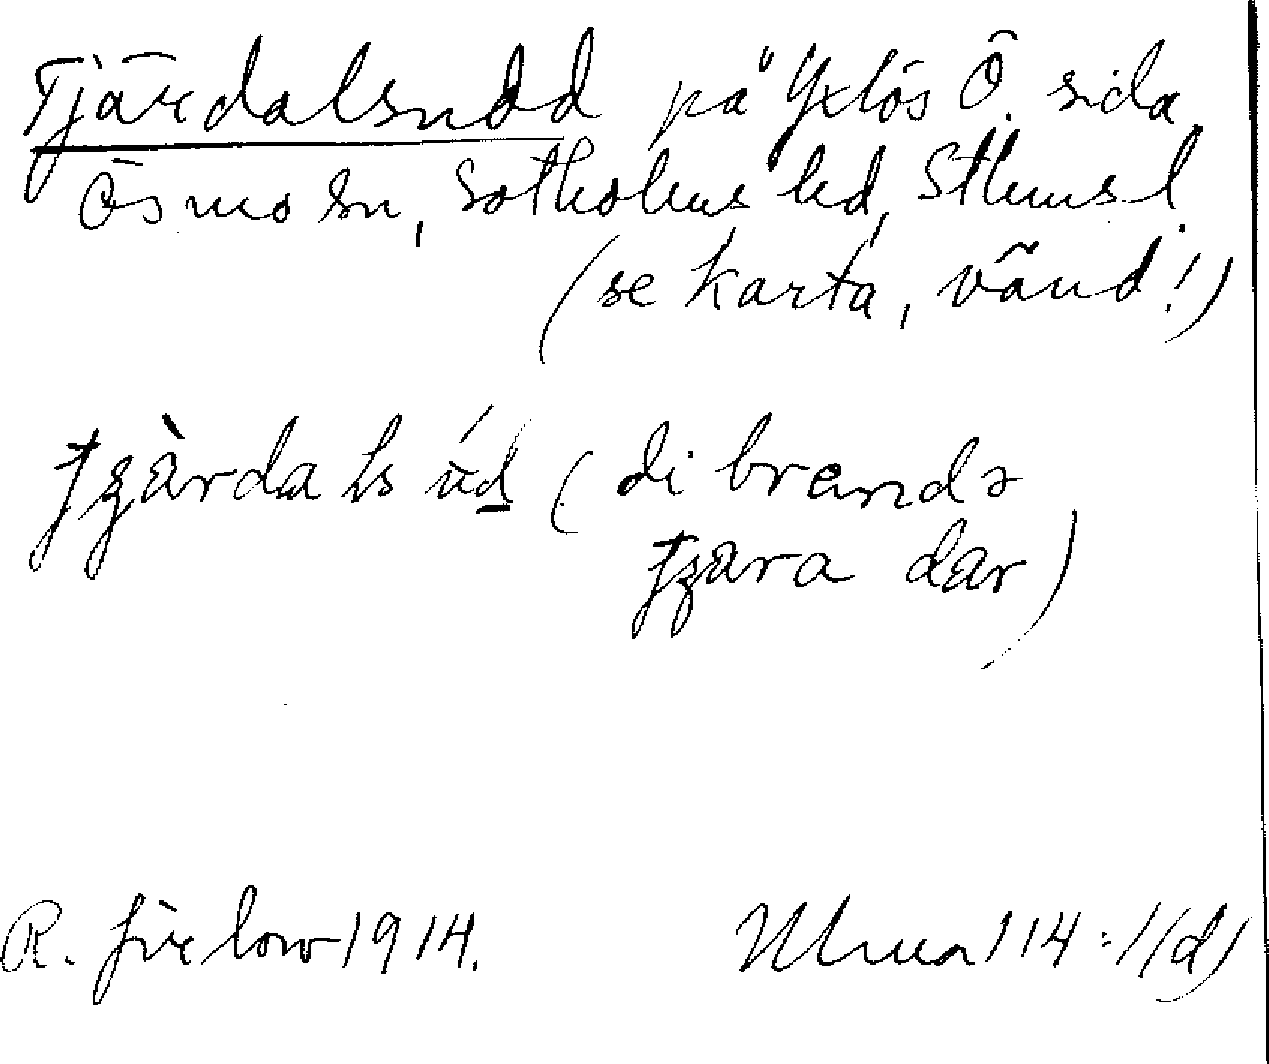 Tjärdalsudd på Yxlös Ö. sida
Ösmo sn, Sotholms hd, Sthms l.
(se karta, vänd!)
tjärdalsúd (di brendə
tjära dar)
R. Jirlow 1914.
114:1(d)